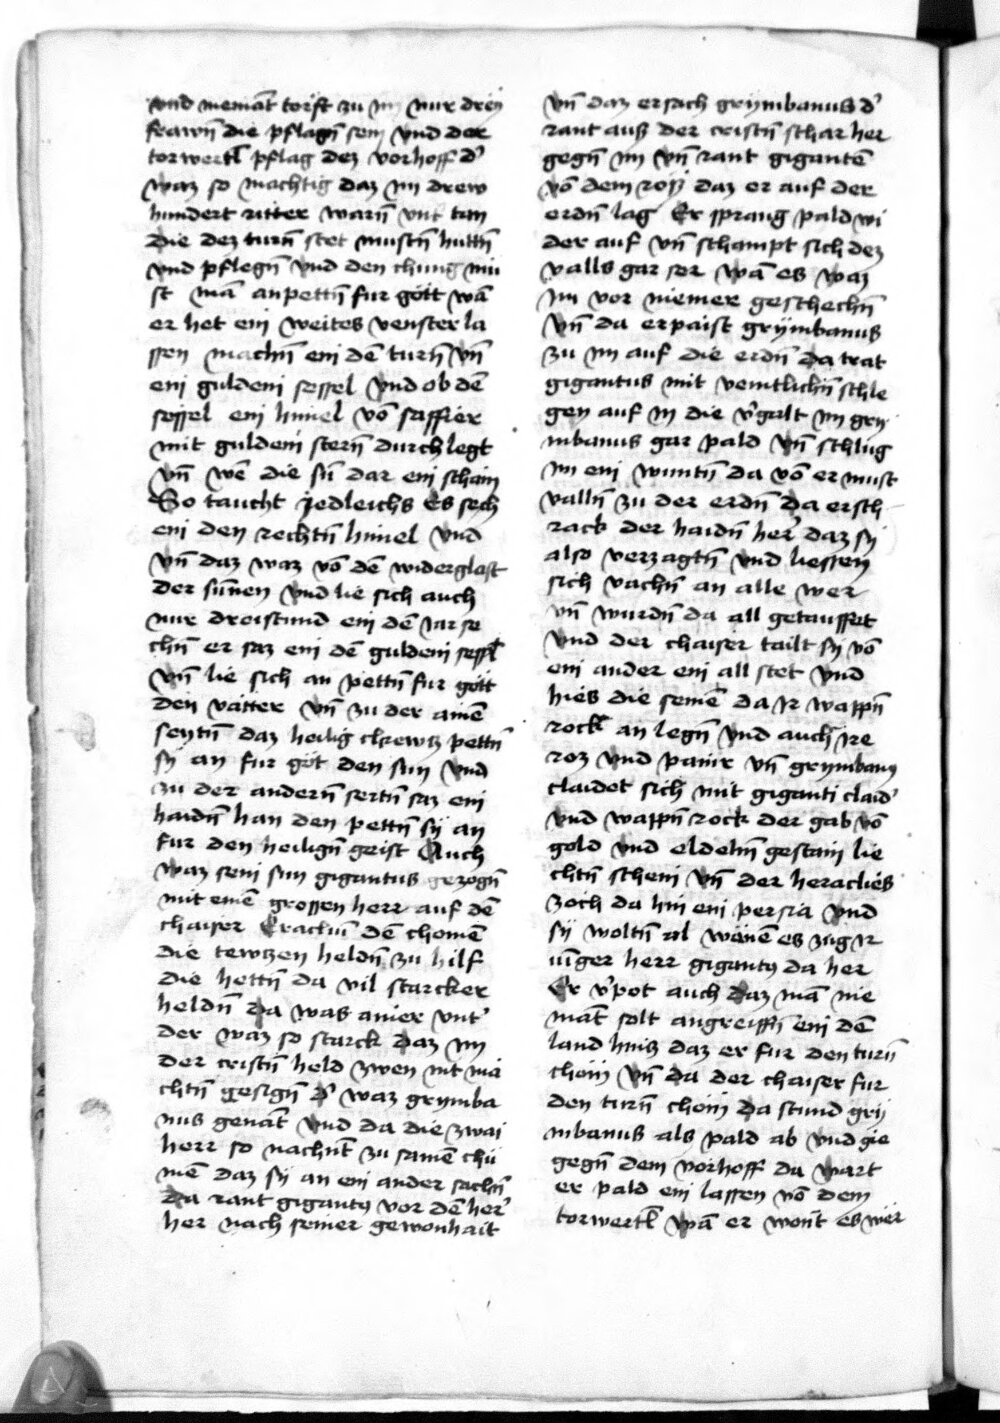 vnd niemāt torst zu im nur drey
frawn̄ die pflagn̄ sein vnd der
torwertl pflag dez vorhoff d'
waz so machtig daz im drew
hundert ritter warn̄ vnt tan
die dez turn̄ stet mustn̄ huttn̄
vnd pflegn̄ vnd den chunig mü
st mā anpettn̄ fur gött wā
er het ein weites venster la
ssen machn̄ ein dē turn̄ vn̄
ein guldein sessel vnd ob dē
sessel ein himel vō saffier
mit guldein stern̄ durchlegt
vn̄ wē die sū dar ein schain
So taucht jedleichs es sech
ein den rechtn̄ himel vnd
vn̄ daz waz vō dē widerglast
der sun̄en vnd lie sich auch
nur dreistund ein dē iar se
chn̄ er saz ein dē guldein sessl
vn̄ lie sich an pettn̄ fur gött
den vätter vn̄ zu der ainē
seytn̄ daz heilig chrewtz pettn̄
sy an fur göt den sun vnd
zu der andern̄ seitn̄ saz ein
haidn̄ han den pettn̄ sy an
fur den heilign̄ geist Auch
waz sein sun gigantus gezogn̄
mit einē grossen herr auf dē
chaiser Eracluī dē chomē
die tewtzen heldn̄ zu hilf
die hettn̄ da vil starcker
heldn̄ da was ainer vnt'
der waz so starck daz im
der cristn̄ held zwen nit ma
chtn̄ gesign̄ d' waz grymba
nus genāt vnd da die zwai
herr so nachnt̄ zu samē chü
mē daz sy an ein ander sachn̄
da rant gigantus vor dē her'
her nach seiner gewonhait
vn̄ daz ersach grymbanus d'
rant auß der cristn̄ schar her
gegn̄ im vn̄ rant gigantē
vō dem roß daz er auf der
erdn̄ lag Er sprang pald wi
der auf vn̄ schampt sich dez
valls gar ser wā es waz
im vor niemer geschechn̄
vn̄ da erpaist grymbanus
zu im auf die erdn̄ da trat
gigantus mit veintlichn̄ schle
gen auf in die v'galt im gry
mbanus gar pald vn̄ schlug
im ein wuntn̄ da vō er must
valln̄ zu der erdn̄ da ersch
rack der haidn̄ her' daz sy
also verzagtn̄ vnd liessen
sich vachn̄ an alle wer
vn̄ wurdn̄ da all getaufft
vnd der chaiser tailt sy vō
ein ander ein all stet vnd
hies die seinē da ir wappn̄
rock an legn̄ vnd auch ire
roz vnd panir vn̄ grymbanus
claidet sich mit giganti claid'
vnd wappn̄rock der gab vō
gold vnd eldelm̄ gestain lie
chtn̄ schein vn̄ der heraclies
zoch da hin ein persia vnd
sy woltn̄ al wänē es zug ir
iūger herr gigantus da her
Er v'pot auch daz mā nie
māt solt angreiffn̄ ein dē
land huntz daz er fur den turn̄
chöm vn̄ da der chaiser fur
den turn̄ chöm da stund gry
mbanus als pald ab vnd gie
gegn̄ dem vorhoff da wart
er pald ein lassen vō dem
torwertl wā er wont̄ es wër